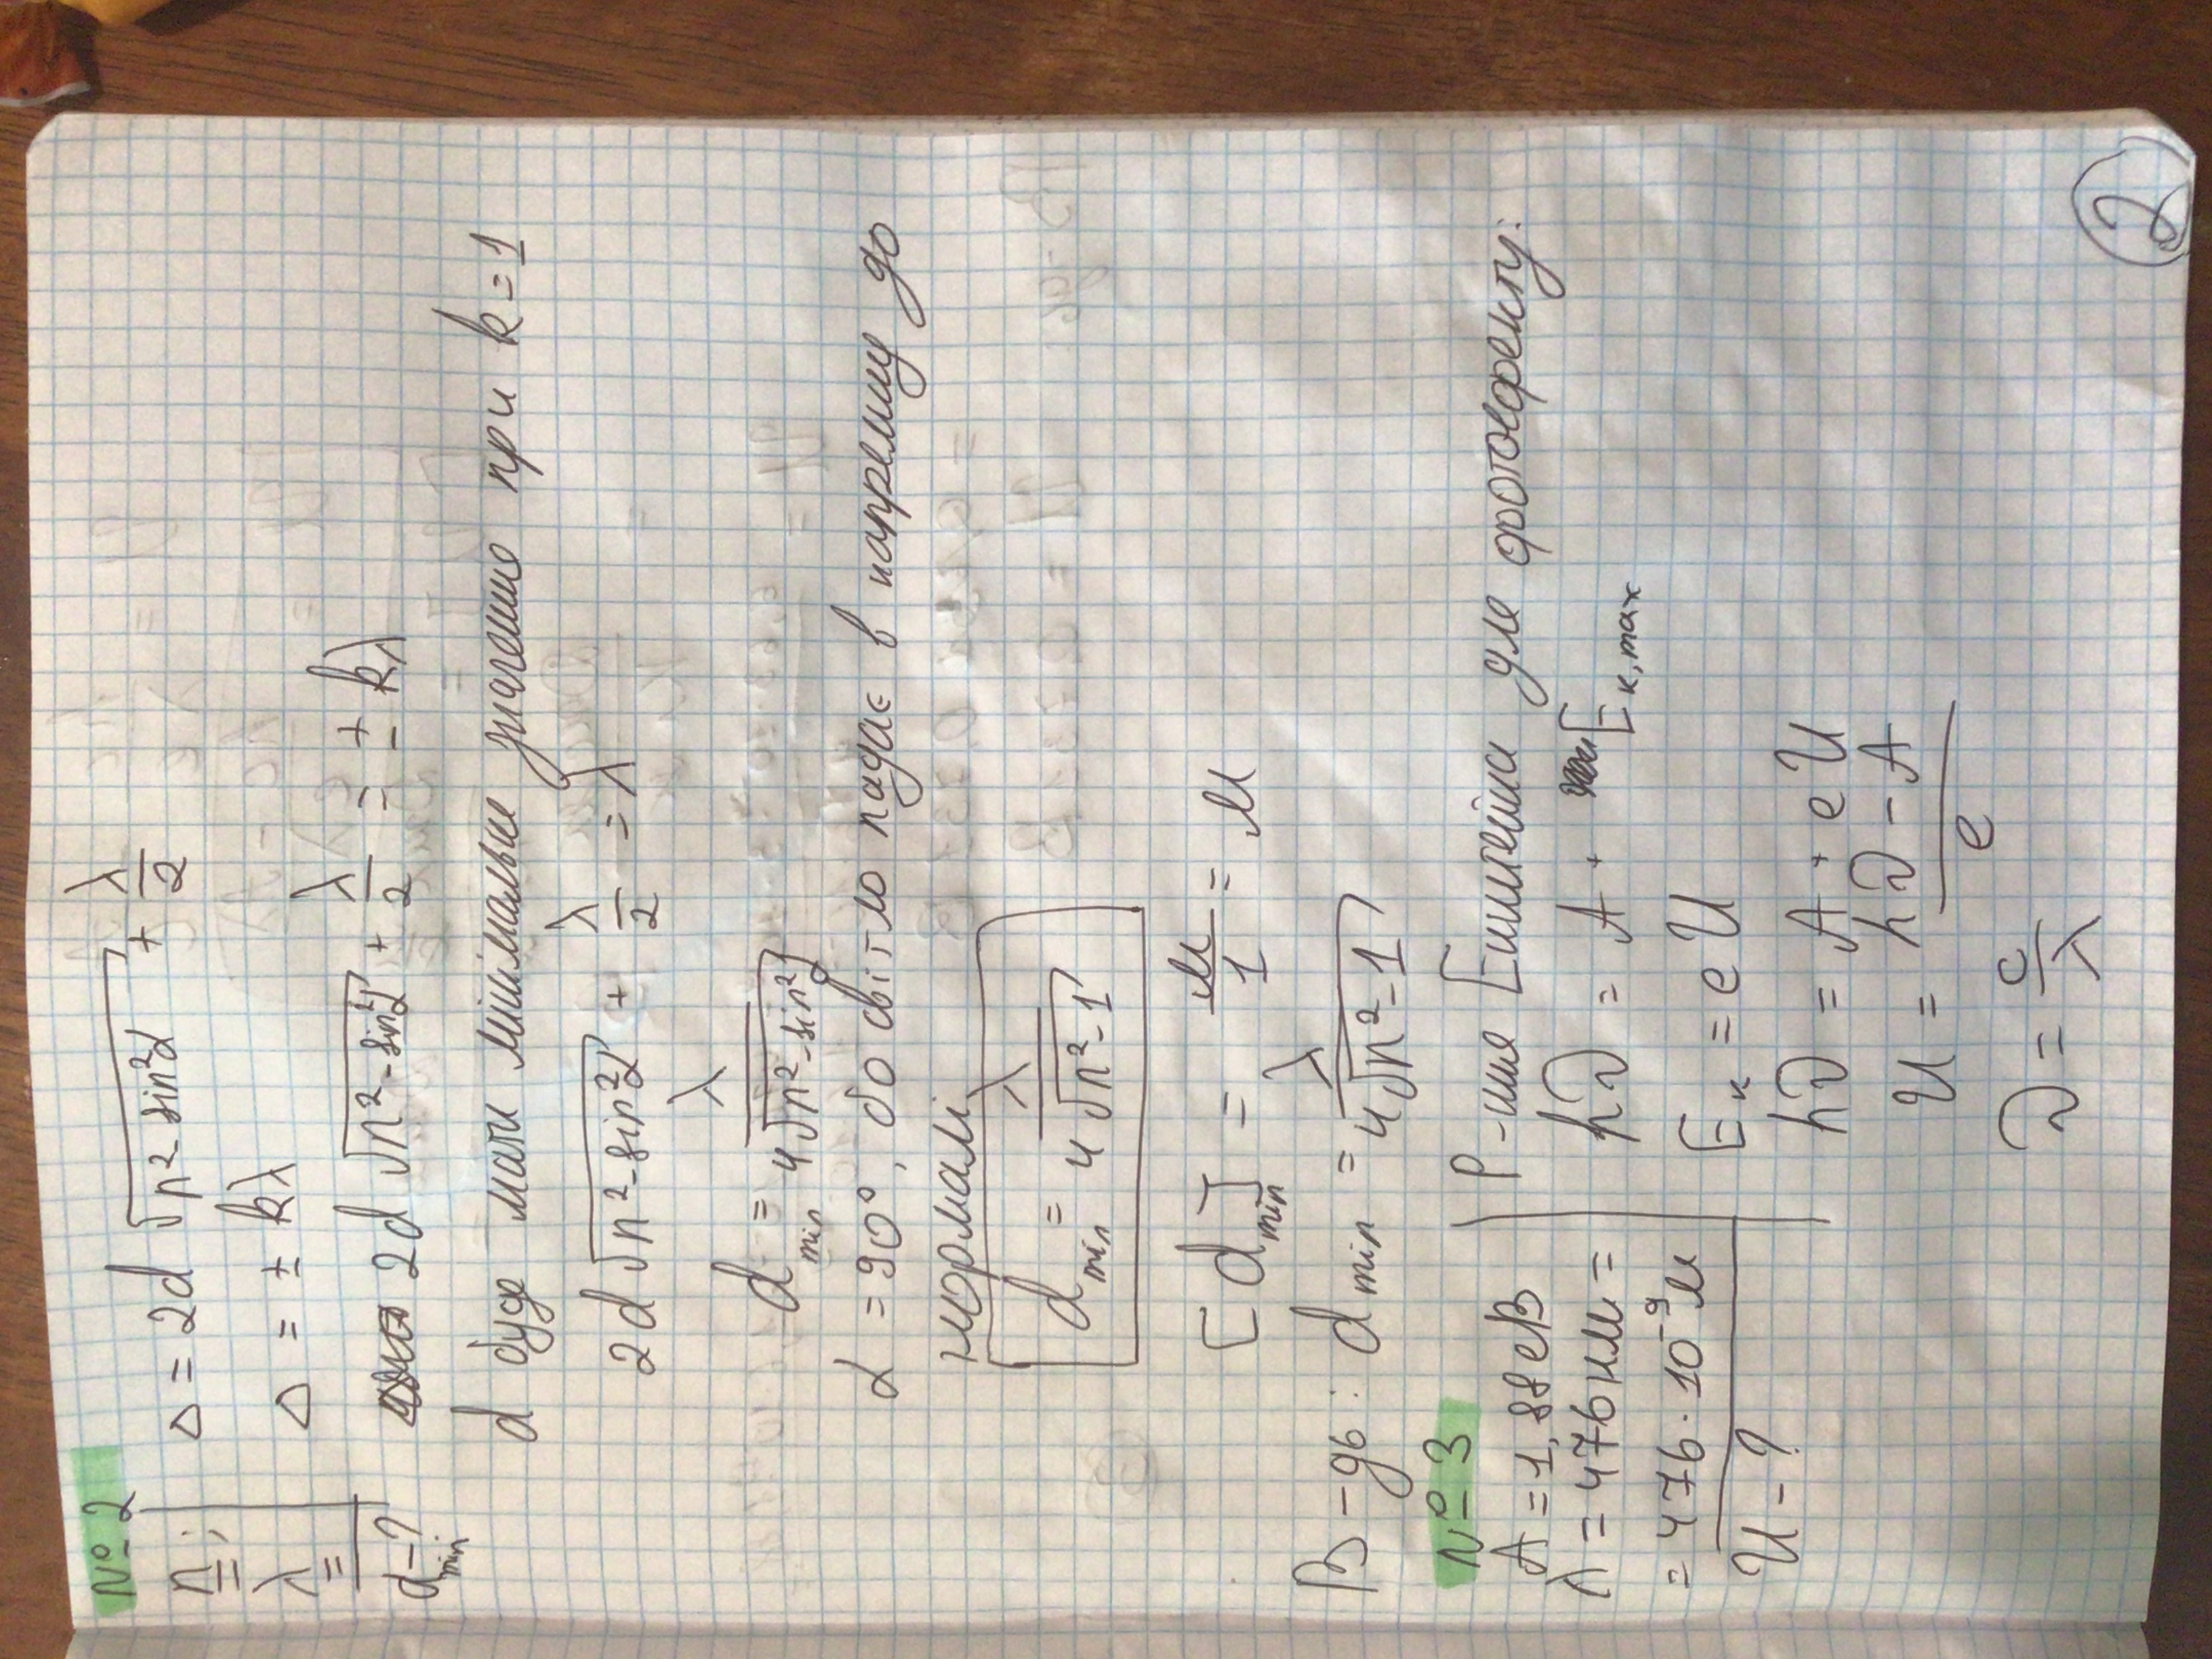 № 2
n;
λ
d min - ?
Δ = 2d √(n² - sin²α) + λ/2
Δ = ± kλ
2d √(n² - sin²α) + λ/2 = ± kλ
d буде мати мінімальне значення при k = 1
2d √(n² - sin²α) + λ/2 = λ
d min = λ / 4√(n² - sin²α)
α = 90°, бо світло падає в напрямку до
нормалі
d min = λ / 4√(n² - 1)
[d min] = м/1 = м
В-дь: d min = λ / 4√(n² - 1)
№ 3
A = 1,88 еВ
λ = 476 нм =
= 476 · 10⁻⁹ м
U - ?
Р-ння Ейнштейна для фотоефекту:
hν = A + E к, max
E к = eU
hν = A + eU
U = (hν - A) / e
ν = c/λ
2